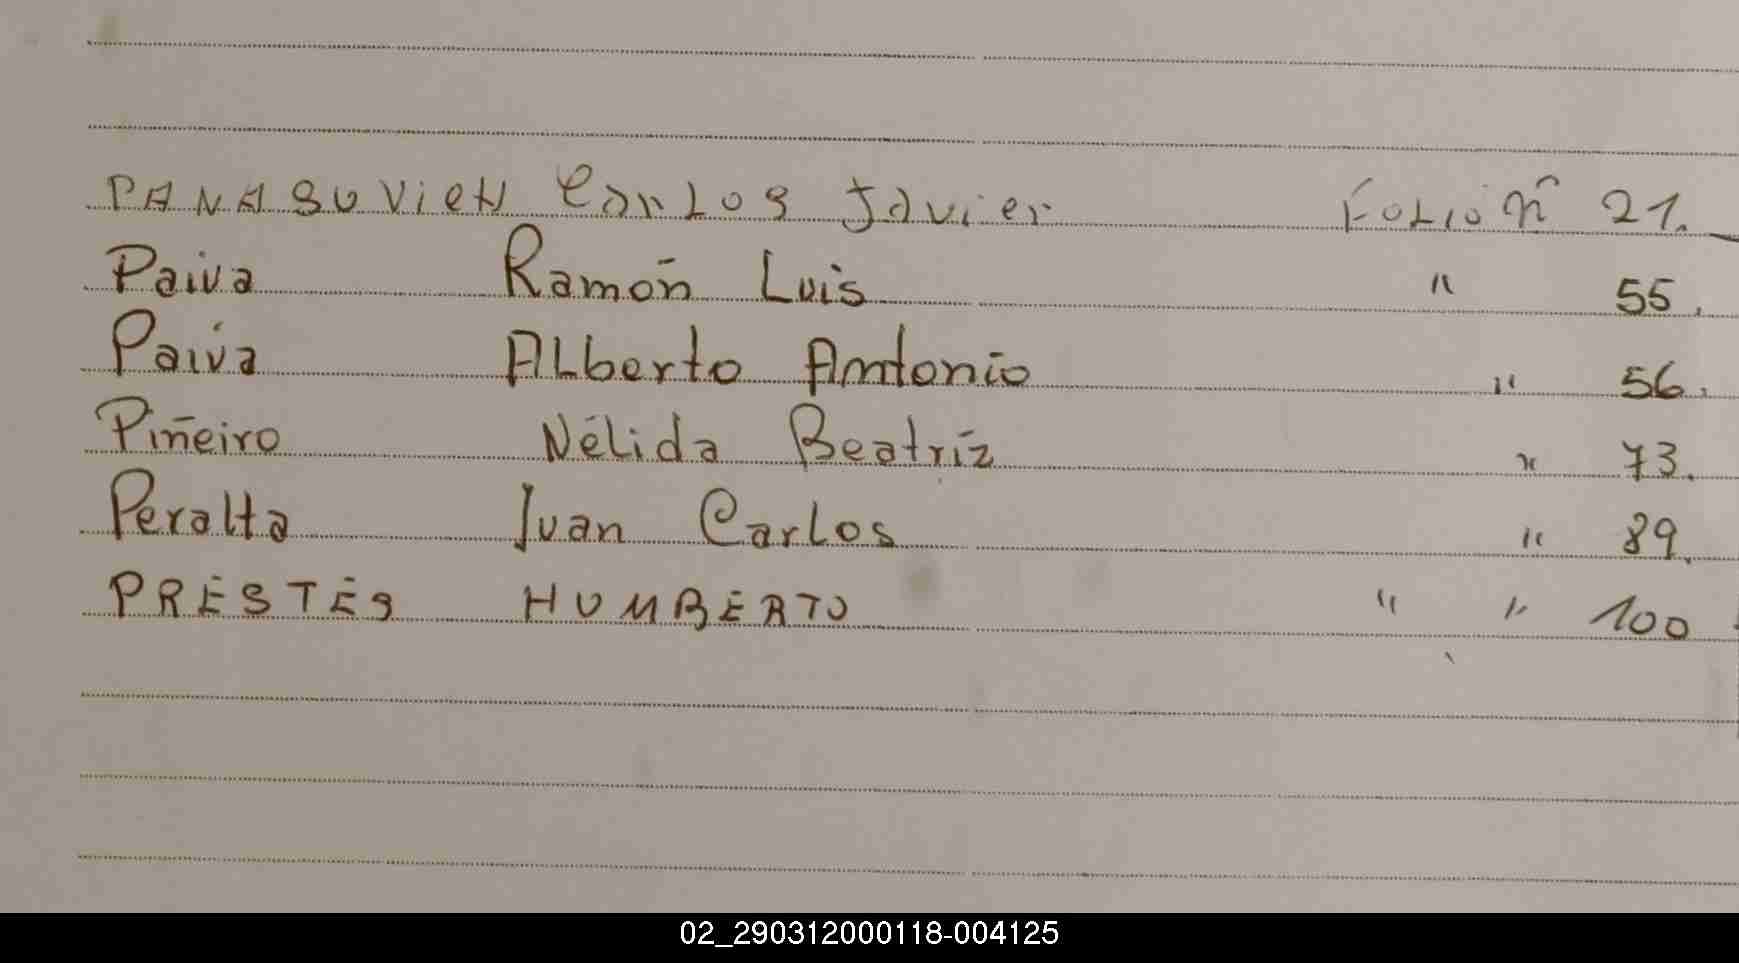 PANASUVIEN Carlos Javier Folio nº 21.
Paiva Ramón Luis " 55.
Paiva Alberto Antonio " 56.
Piñeiro Nélida Beatríz " 73.
Peralta Juan Carlos " 89.
PRESTES HUMBERTO " " 100
02_290312000118-004125